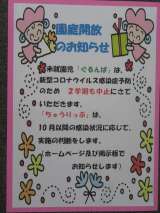 園庭開放
のお知らせ
未就園児「ぐるんぱ」は、
新型コロナウイルス感染症予防
のため 2学期も中止にさせて
いただきます。
「ちゅうりっぷ」は、
10月以降の感染状況に応じて、
実施の判断をします。
(ホームページ及び掲示板で
お知らせします)